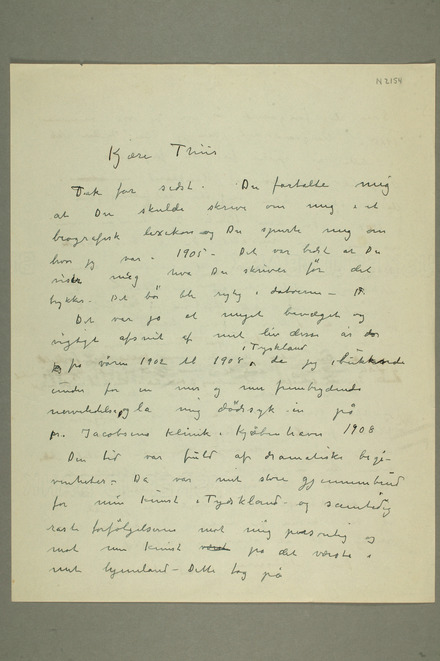 N 2154
Kjære Thiis
Tak for sidst. Du fortalte mig
at Du skulde skrive om mig i et
biografisk lexikon og Du spurte mig om
hvor jeg var i 1905 – Det var bedst at Du
viste mig hva Du skriver før det
trykkes. Det bør bli rigtig i datoerne –
Det var jo et meget bevæget og
vigtigt afsnit af mit liv disse år
fra våren 1902 til 1908, da jeg i Tyskland
under for en mer og mer frembrydende
nervelidelse og la mig dødssyk in på
Dr. Jacobsens klinik i Kjøbenhavn 1908
Den tid var fuld af dramatiske begi-
venheter – Da var mit store gjennembrud
for min kunst i Tyskland – og samtidig
raste forfølgelserne mot mig personlig og
mot min kunst på det værste i
mit hjemland – Dette tog på